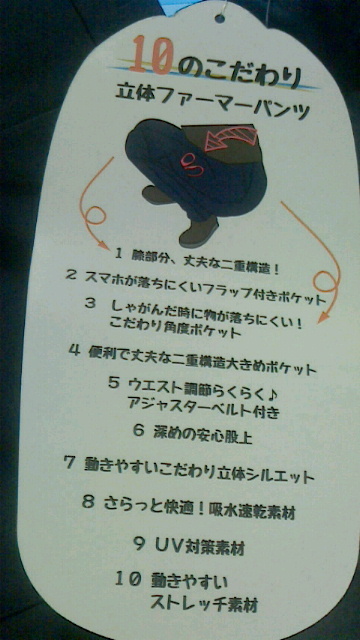 10のこだわり
立体ファーマーパンツ
1 膝部分、丈夫な二重構造！
2 スマホが落ちにくいフラップ付きポケット
3 しゃがんだ時に物が落ちにくい！
こだわり角度ポケット
4 便利で丈夫な二重構造大きめポケット
5 ウエスト調節らくらく♪
アジャスターベルト付き
6 深めの安心股上
7 動きやすいこだわり立体シルエット
8 さらっと快適！吸水速乾素材
9 UV対策素材
10 動きやすい
ストレッチ素材